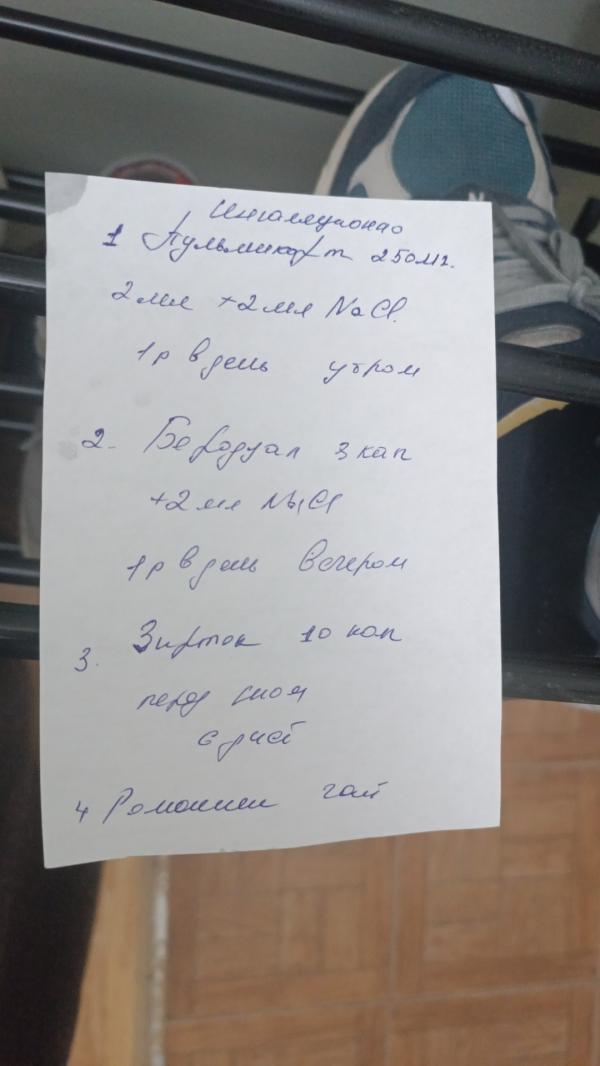 Ингаляционно
1 Пульмикорт 250мг.
2мл +2мл NaCl.
1р в день утром
2. Беродуал 3 кап
+2мл NaCl
1р в день вечером
3. Зиртек 10 кап
перед сном
6 дней
4 Ромашки чай